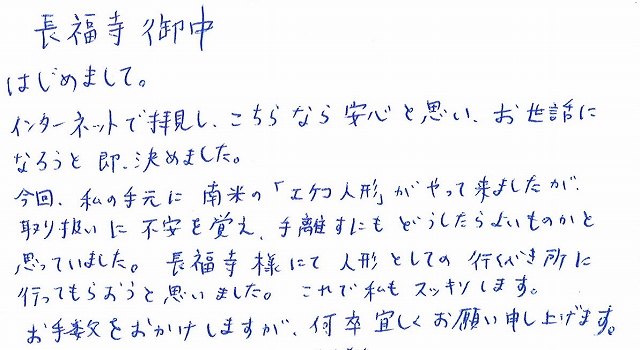 長福寺御中
はじめまして。
インターネットで拝見し、こちらなら安心と思い、お世話に
なろうと即、決めました。
今回、私の手元に南米の「エケコ人形」がやって来ましたが、
取り扱いに不安を覚え、手離すにもどうしたらよいものかと
思っていました。長福寺様にて人形としての行くべき所に
行ってもらおうと思いました。これで私もスッキリします。
お手数をおかけしますが、何卒宜しくお願い申し上げます。